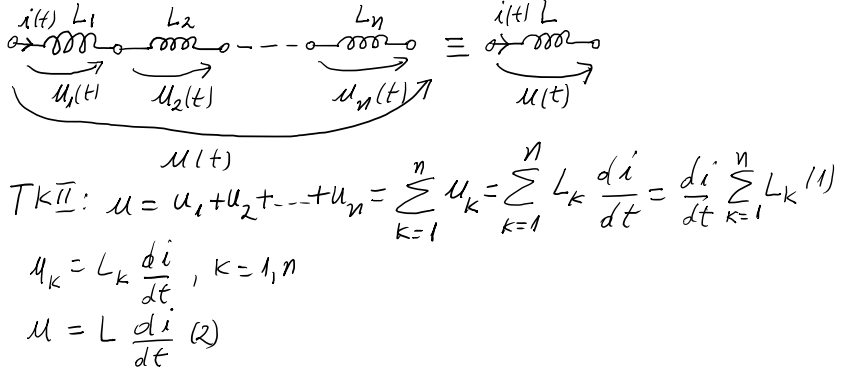 i(t) L₁ L₂ Lₙ i(t) L
---- ≡
u₁(t) u₂(t) uₙ(t) u(t)
u(t)
TKII: u = u₁+u₂+----+uₙ = ∑ₖ₌₁ⁿ uₖ = ∑ₖ₌₁ⁿ Lₖ di/dt = di/dt ∑ₖ₌₁ⁿ Lₖ (1)
uₖ = Lₖ di/dt , k = 1,n
u = L di/dt (2)